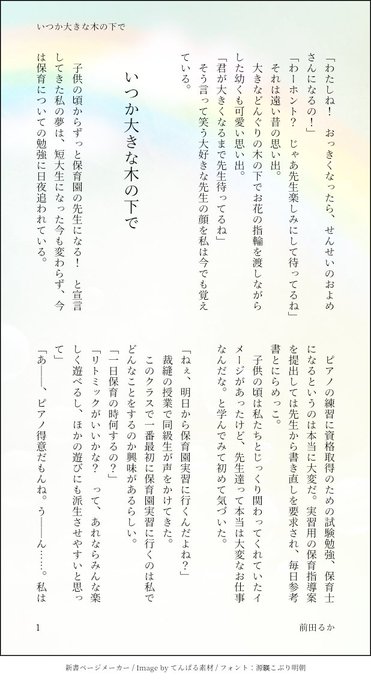 いつか大きな木の下で
「わたしね！　おっきくなったら、せんせいのおよめ
さんになるの！」
「わーホント？　じゃあ先生楽しみにして待ってるね」
それは遠い昔の思い出。
大きなどんぐりの木の下でお花の指輪を渡しながら
した幼くも可愛い思い出。
「君が大きくなるまで先生待ってるね」
そう言って笑う大好きな先生の顔を私は今でも覚え
ている。
いつか大きな木の下で
子供の頃からずっと保育園の先生になる！　と宣言
してきた私の夢は、短大生になった今も変わらず、今
は保育についての勉強に日夜追われている。
ピアノの練習に資格取得のための試験勉強、保育士
になるというのは本当に大変だ。実習用の保育指導案
を提出しては先生から書き直しを要求され、毎日参考
書とにらめっこ。
子供の頃は私たちとじっくり関わってくれていたイ
メージがあったけど、先生達って本当は大変なお仕事
なんだな。と学んでみて初めて気づいた。
「ねぇ、明日から保育園実習に行くんだよね？」
裁縫の授業で同級生が声をかけてきた。
このクラスで一番最初に保育園実習に行くのは私で
どんなことをするのか興味があるらしい。
「一日保育の時何するの？」
「リトミックがいいかな？　って、あれならみんな楽
しく遊べるし、ほかの遊びにも派生させやすいと思っ
て」
「あ――、ピアノ得意だもんね。う――ん……。私は
1
前田るか
新書ページメーカー / Image by てんぱる素材 / フォント：源暎こぶり明朝